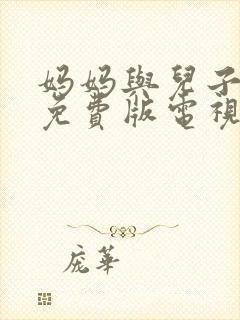 妈妈與兒子
免費版電視
庞華